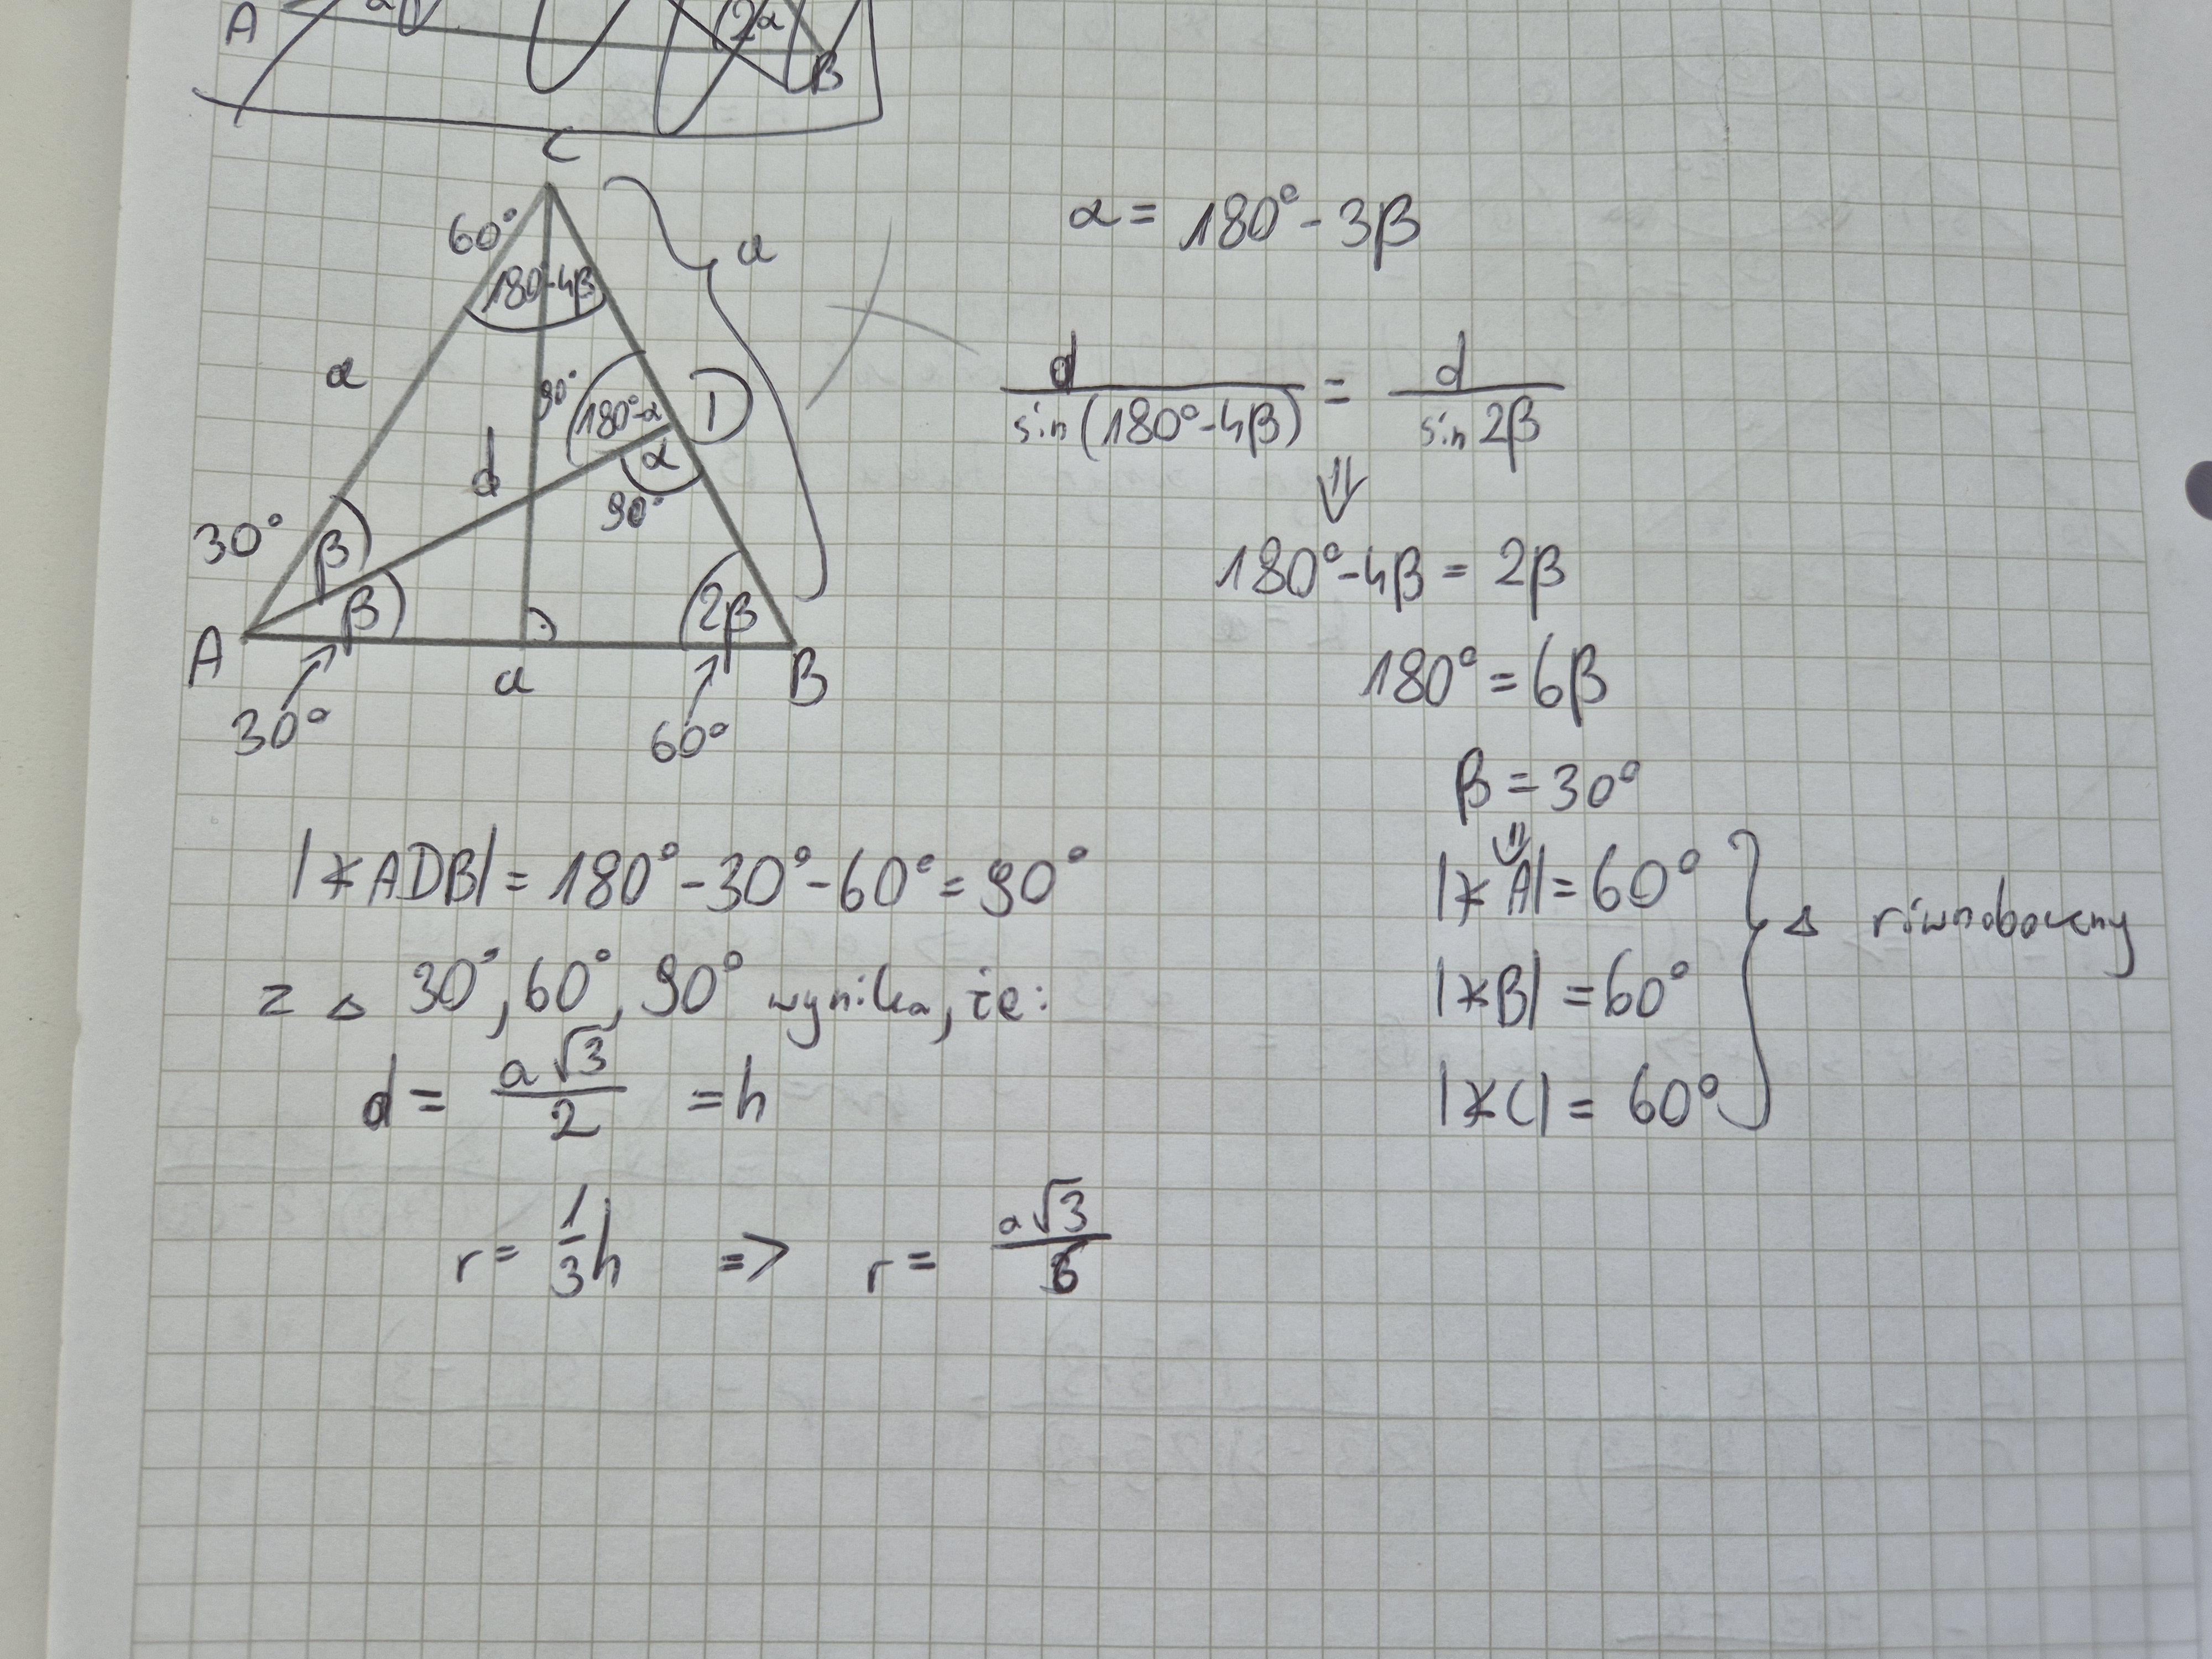 A α 2α B
C
60°
180°-4β
a
a
90°
180°-α
D
α
d
90°
30°
β
β
2β
A
a
B
30°
60°
α = 180° - 3β
d / sin(180°-4β) = d / sin 2β
⇓
180°-4β = 2β
180° = 6β
β = 30°
⇓
|∡A| = 60°
|∡B| = 60°
|∡C| = 60°
} Δ równoboczny
|∡ADB| = 180° - 30° - 60° = 90°
z Δ 30°, 60°, 90° wynika, że:
d = a√3 / 2 = h
r = 1/3 h => r = a√3 / 6